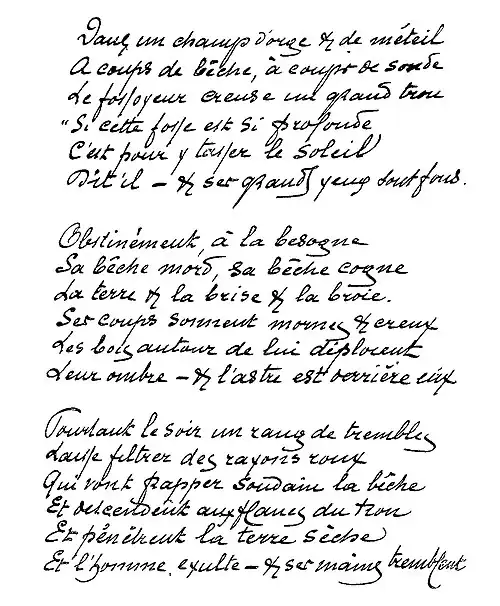 Dans un champ d'orge & de méteil
A coups de bêche, à coups de sonde
Le fossoyeur creuse un grand trou
"Si cette fosse est si profonde
C'est pour y tasser le soleil
Dit il — & ses grands yeux sont fous.
Obstinément, à la besogne
Sa bêche mord, sa bêche cogne
La terre & la brise & la broie.
Ses coups sonnent mornes & creux
Les bois autour de lui déploient
Leur ombre — & l'astre est derrière eux
Pourtant le soir un rang de trembles
Laisse filtrer des rayons roux
Qui vont frapper soudain la bêche
Et descendent aux flancs du trou
Et pénètrent la terre sèche
Et l'homme exulte — & ses mains tremblent